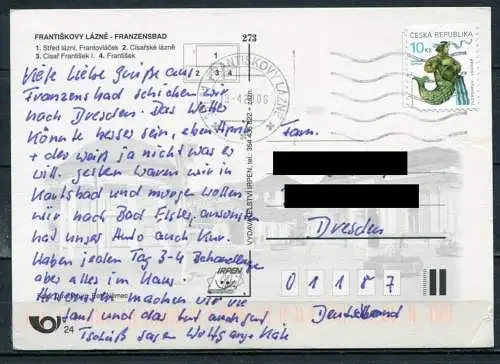 FRANTIŠKOVY LÁZNĚ - FRANZENSBAD
1. Střed lázní, Frantovláček 2. Císařské lázně
3. Císař František I. 4. František
273
1
2 3 4
FRANTIŠKOVY LÁZNĚ
ČESKÁ REPUBLIKA
10 Kč
Viele liebe Grüße aus
Franzensbad schicken wir
nach Dresden. Das Wetter
könnte besser sein, eben April
+ der weiß ja nicht was er
will. Gestern waren wir in
Karlsbad und morgen wollen
wir nach Bad Elster, ansonsten
hat unser Auto auch Kur.
Haben jeden Tag 3-4 Behandlungen
aber alles im Haus.
machen wir viel
und das tut auch gut
Tschüß sagen Wolfgang +
VYDAVATELSTVÍ IRPEN, tel.: 354 435 622
IRPEN
Fam.
Dresden
01187
Deutschland
24